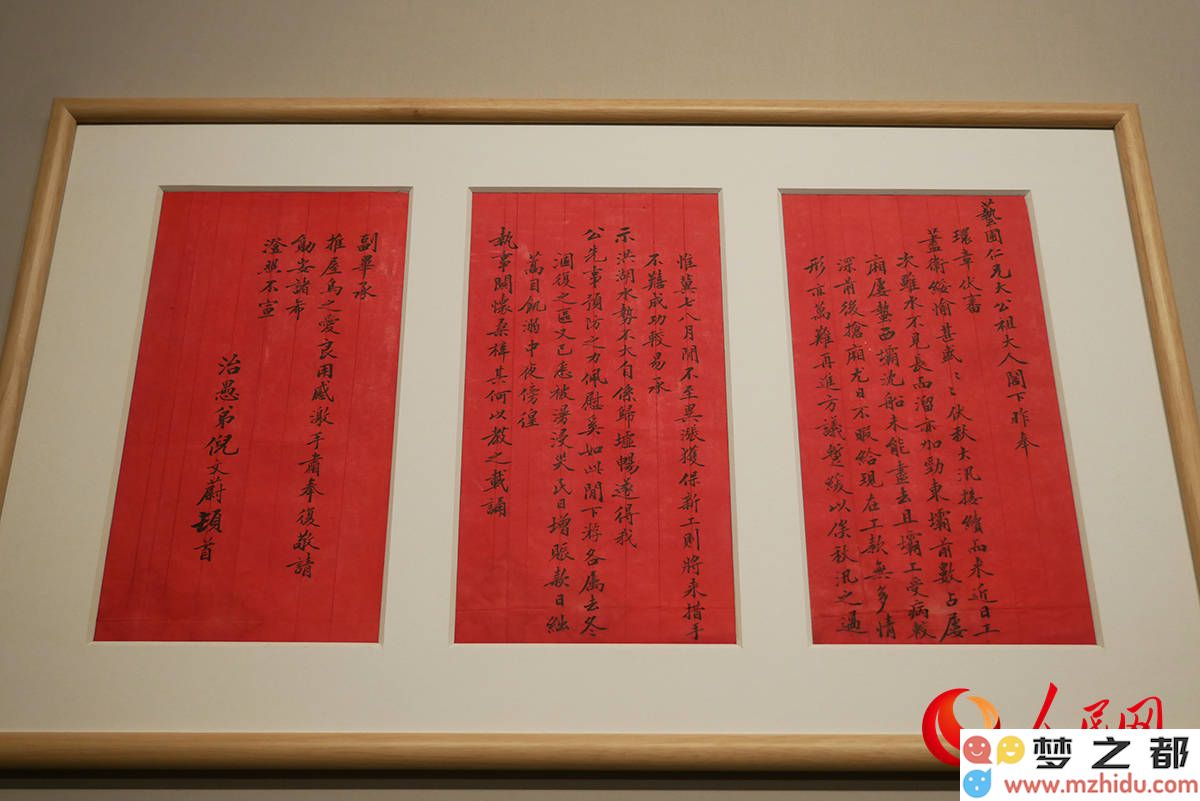 藝圃仁兄大公祖大人閣下昨奉
環章伏審
藎衛綏愉甚感甚感伏秋大汛接續而來近日工
次雖水不見長而溜亦加勁東壩前數占屢
廂屢蟄西壩沈船未能盡去且壩工受病較
深前後搶廂尤日不暇給現在工款無多情
形亦萬難再進方議暫緩以俟秋汛之過
惟冀七八月間不至異漲獲保新工則將來措手
不難成功較易承
示洪湖水勢不大自係歸墟暢遂得我
公先事預防之力佩慰奚如此間下游各屬去冬
涸復之區又已悉被漫災民日增賑款日絀
蒿目飢溺中夜傍徨
執事關懷桑梓其何以教之載誦
副畢承
推屋烏之愛良用感激手肅奉復敬請
勛安諸希
澄照不宣
治愚弟倪文蔚頓首
人民网
梦之都
www.mzhidu.com